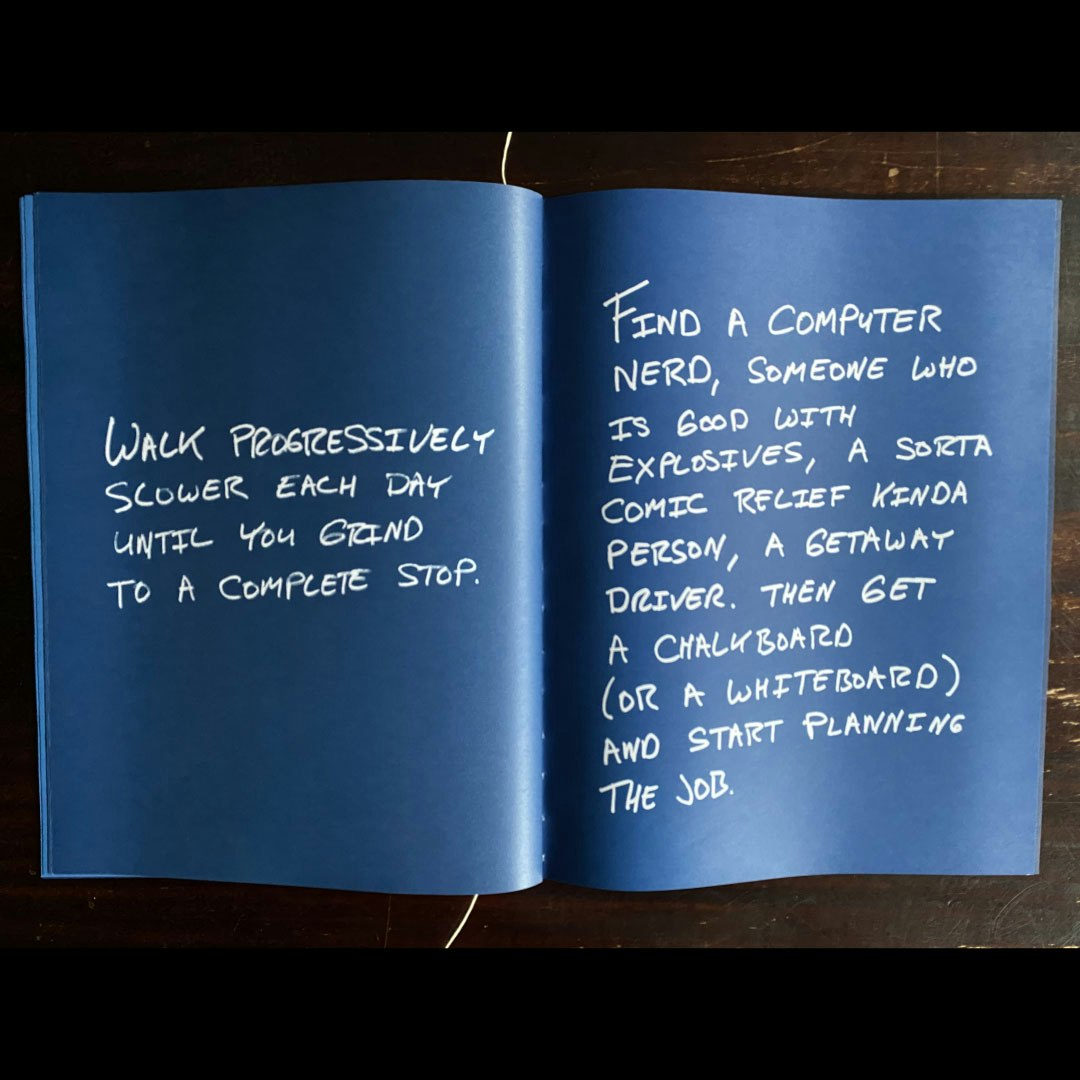 WALK PROGRESSIVELY
SLOWER EACH DAY
UNTIL YOU GRIND
TO A COMPLETE STOP.
FIND A COMPUTER
NERD, SOMEONE WHO
IS GOOD WITH
EXPLOSIVES, A SORTA
COMIC RELIEF KINDA
PERSON, A GETAWAY
DRIVER. THEN GET
A CHALKBOARD
(OR A WHITEBOARD)
AND START PLANNING
THE JOB.